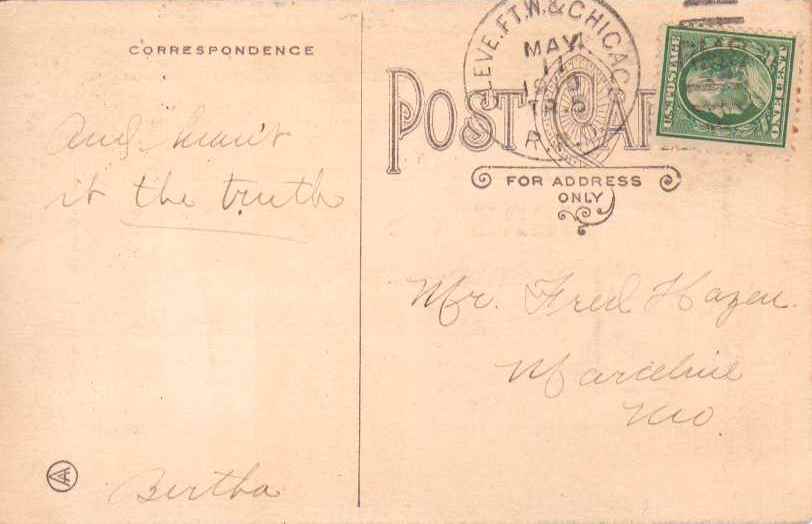 CORRESPONDENCE
And hain't
it the truth
Bertha
CLEVE. FT.W. & CHICAGO
MAY
11
R.P.O.
U.S. POSTAGE
ONE CENT
POST CARD
FOR ADDRESS
ONLY
Mr. Fred Hazen.
Marceline
Mo